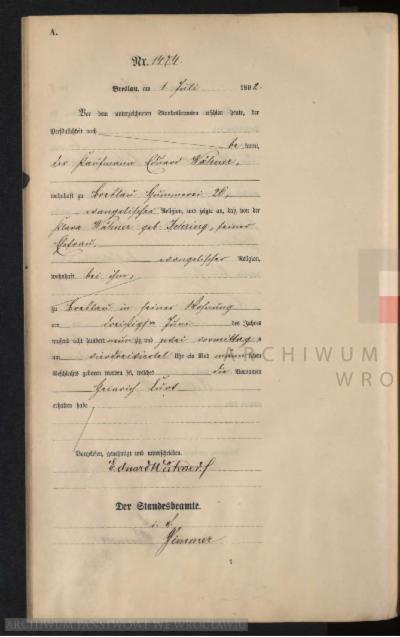 A.
Nr. 1474.
Breslau, am 1 Juli 1892.
Vor dem unterzeichneten Standesbeamten erschien heute, der
Persönlichkeit nach
be kannt,
der Kaufmann Eduard
wohnhaft zu Breslau Hummerei 28,
evangelischer Religion, und zeigte an, daß von der
Klara geb. seiner
Ehefrau,
evangelischer Religion,
wohnhaft bei ihm,
zu Breslau in seiner Wohnung
am dreißigsten Juni des Jahres
tausend acht hundert neunzig und zwei vormittags
um Uhr ein Kind männlichen
Geschlechts geboren worden sei, welches die Vornamen
Heinrich Kurt
erhalten habe
Vorgelesen, genehmigt und unterschrieben.
Eduard
Der Standesbeamte.
ARCHIWUM
WRO
ARCHIWUM PAŃSTWOWE WE WROCŁAWIU